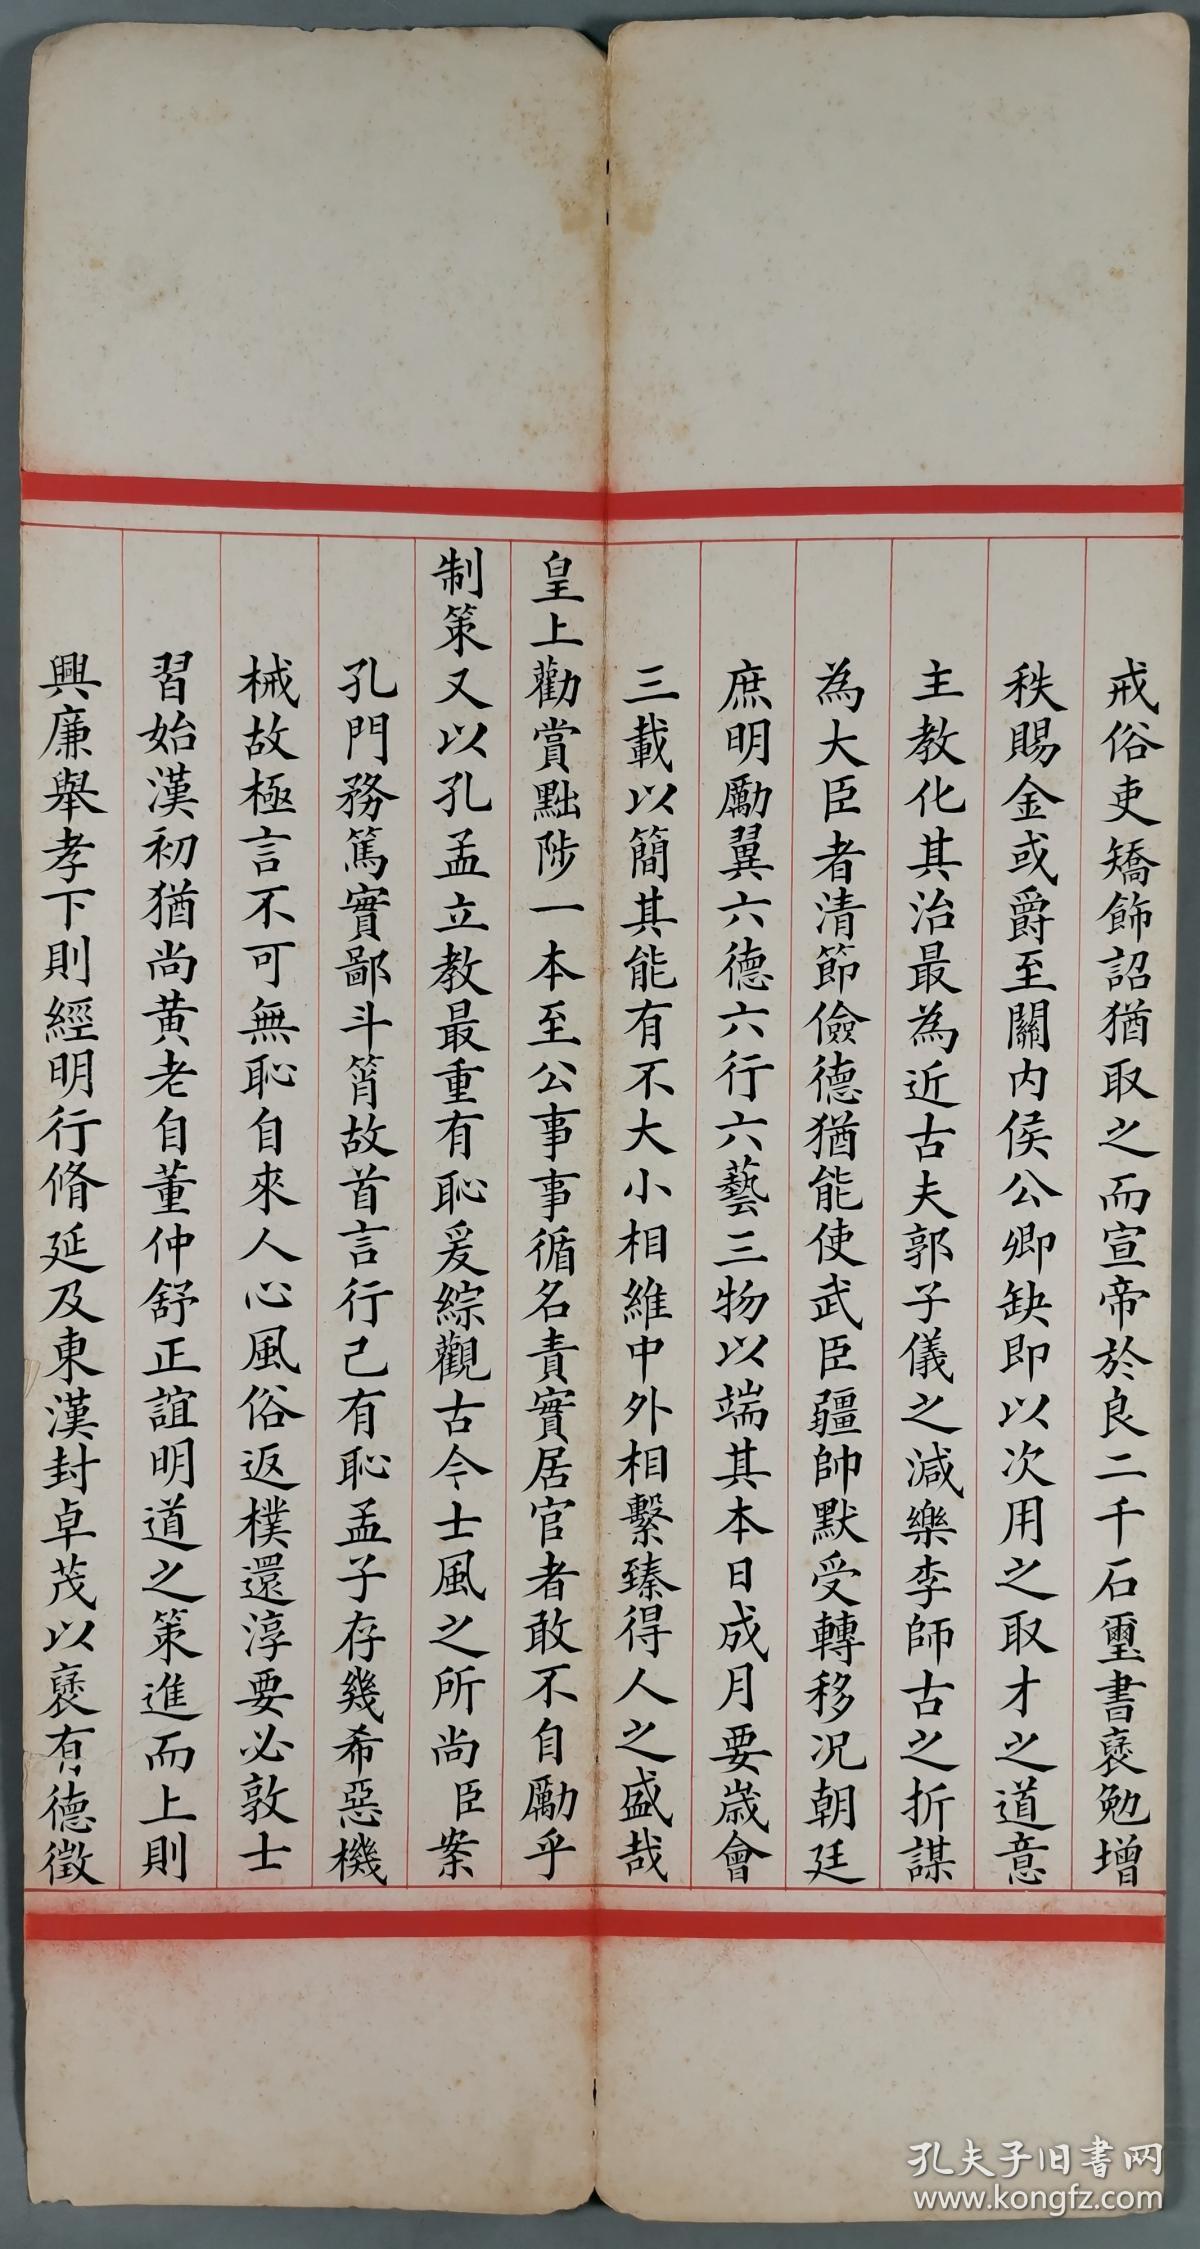 戒俗吏矯飾詔猶取之而宣帝於良二千石璽書褒勉增
秩賜金或爵至關內侯公卿缺即以次用之取才之道意
主教化其治最為近古夫郭子儀之減樂李師古之折謀
為大臣者清節儉德猶能使武臣疆帥默受轉移况朝廷
庶明勵翼六德六行六藝三物以端其本日成月要歲會
三載以簡其能有不大小相維中外相繫臻得人之盛哉
皇上勸賞黜陟一本至公事事循名責實居官者敢不自勵乎
制策又以孔孟立教最重有恥爰綜觀古今士風之所尚臣案
孔門務篤實鄙斗筲故首言行己有恥孟子存幾希惡機
械故極言不可無恥自來人心風俗返樸還淳要必敦士
習始漢初猶尚黃老自董仲舒正誼明道之策進而上則
興廉舉孝下則經明行脩延及東漢封卓茂以褒有德徵
孔夫子旧书网
www.kongfz.com